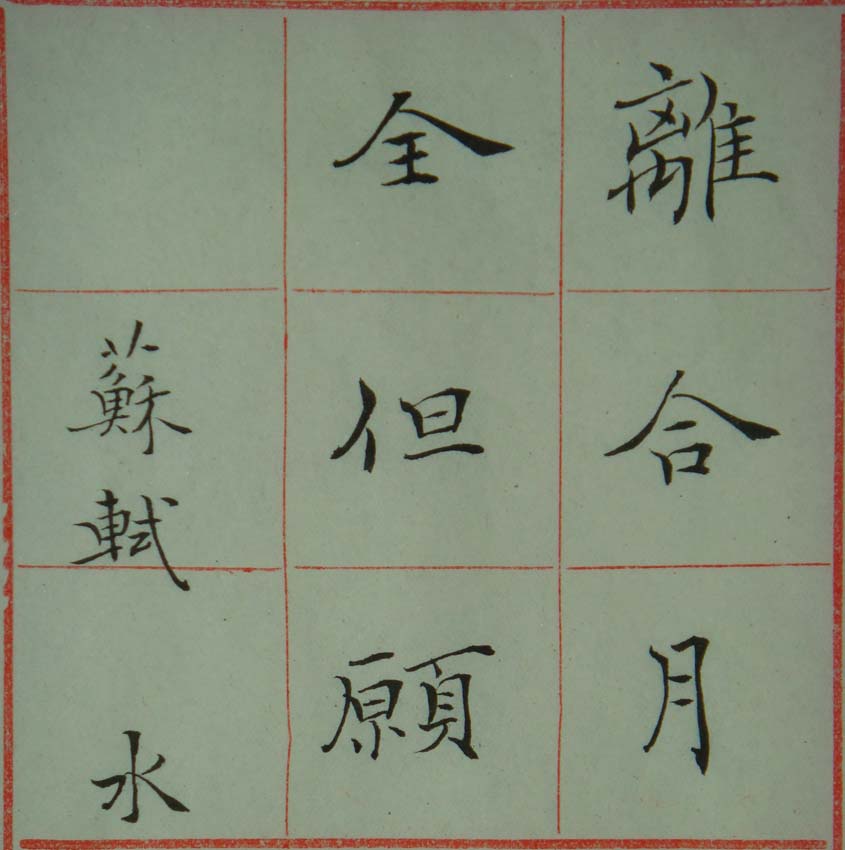 離合月
全但願
蘇軾水